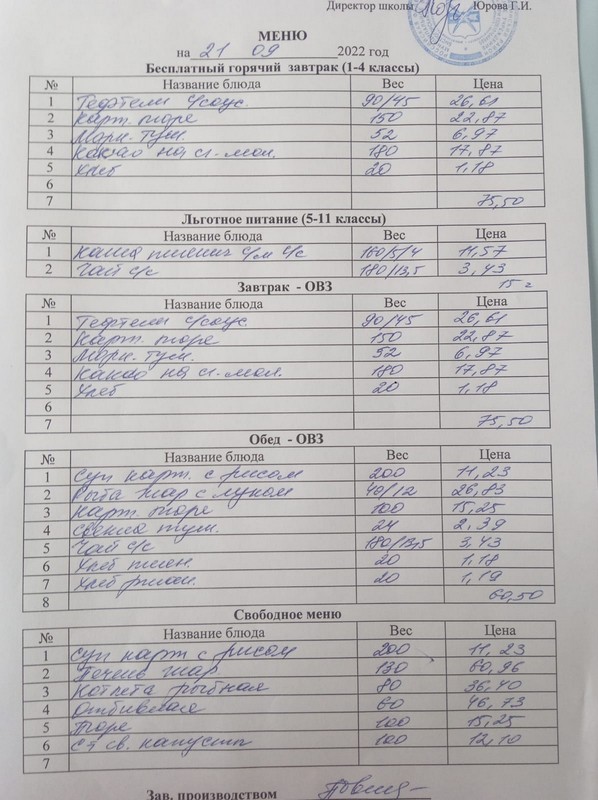 Директор школы Юрова Г.И.
МЕНЮ
на 21 09 2022 год
Бесплатный горячий завтрак (1-4 классы)
№ Название блюда Вес Цена
1 Тефтели с/соус 90/45 26,61
2 Карт. пюре 150 22,87
3 Морк. туш. 52 6,97
4 Какао на сг. мол. 180 17,87
5 Хлеб 20 1,18
6
7 75,50
Льготное питание (5-11 классы)
№ Название блюда Вес Цена
1 Каша пшенич с/м с/с 160/5/4 11,57
2 Чай с/с 180/13,5 3,43
15 
Завтрак - ОВЗ
№ Название блюда Вес Цена
1 Тефтели с/соус 90/45 26,61
2 Карт. пюре 150 22,87
3 Морк. туш. 52 6,97
4 Какао на сг. мол. 180 17,87
5 Хлеб 20 1,18
6
7 75,50
Обед - ОВЗ
№ Название блюда Вес Цена
1 Суп карт. с рисом 200 11,23
2 Рыба жар с луком 40/12 26,83
3 Карт. пюре 100 15,25
4 Свекла туш. 24 2,39
5 Чай с/с 180/13,5 3,43
6 Хлеб пшен. 20 1,18
7 Хлеб ржан. 20 1,19
8 60,50
Свободное меню
№ Название блюда Вес Цена
1 Суп карт с рисом 200 11,23
2 Печень жар 130 60,96
3 Котлета рыбная 80 36,40
4 Отбивная 60 46,73
5 Пюре 100 15,25
6 С-т св. капусты 100 12,10
7
Зав. производством